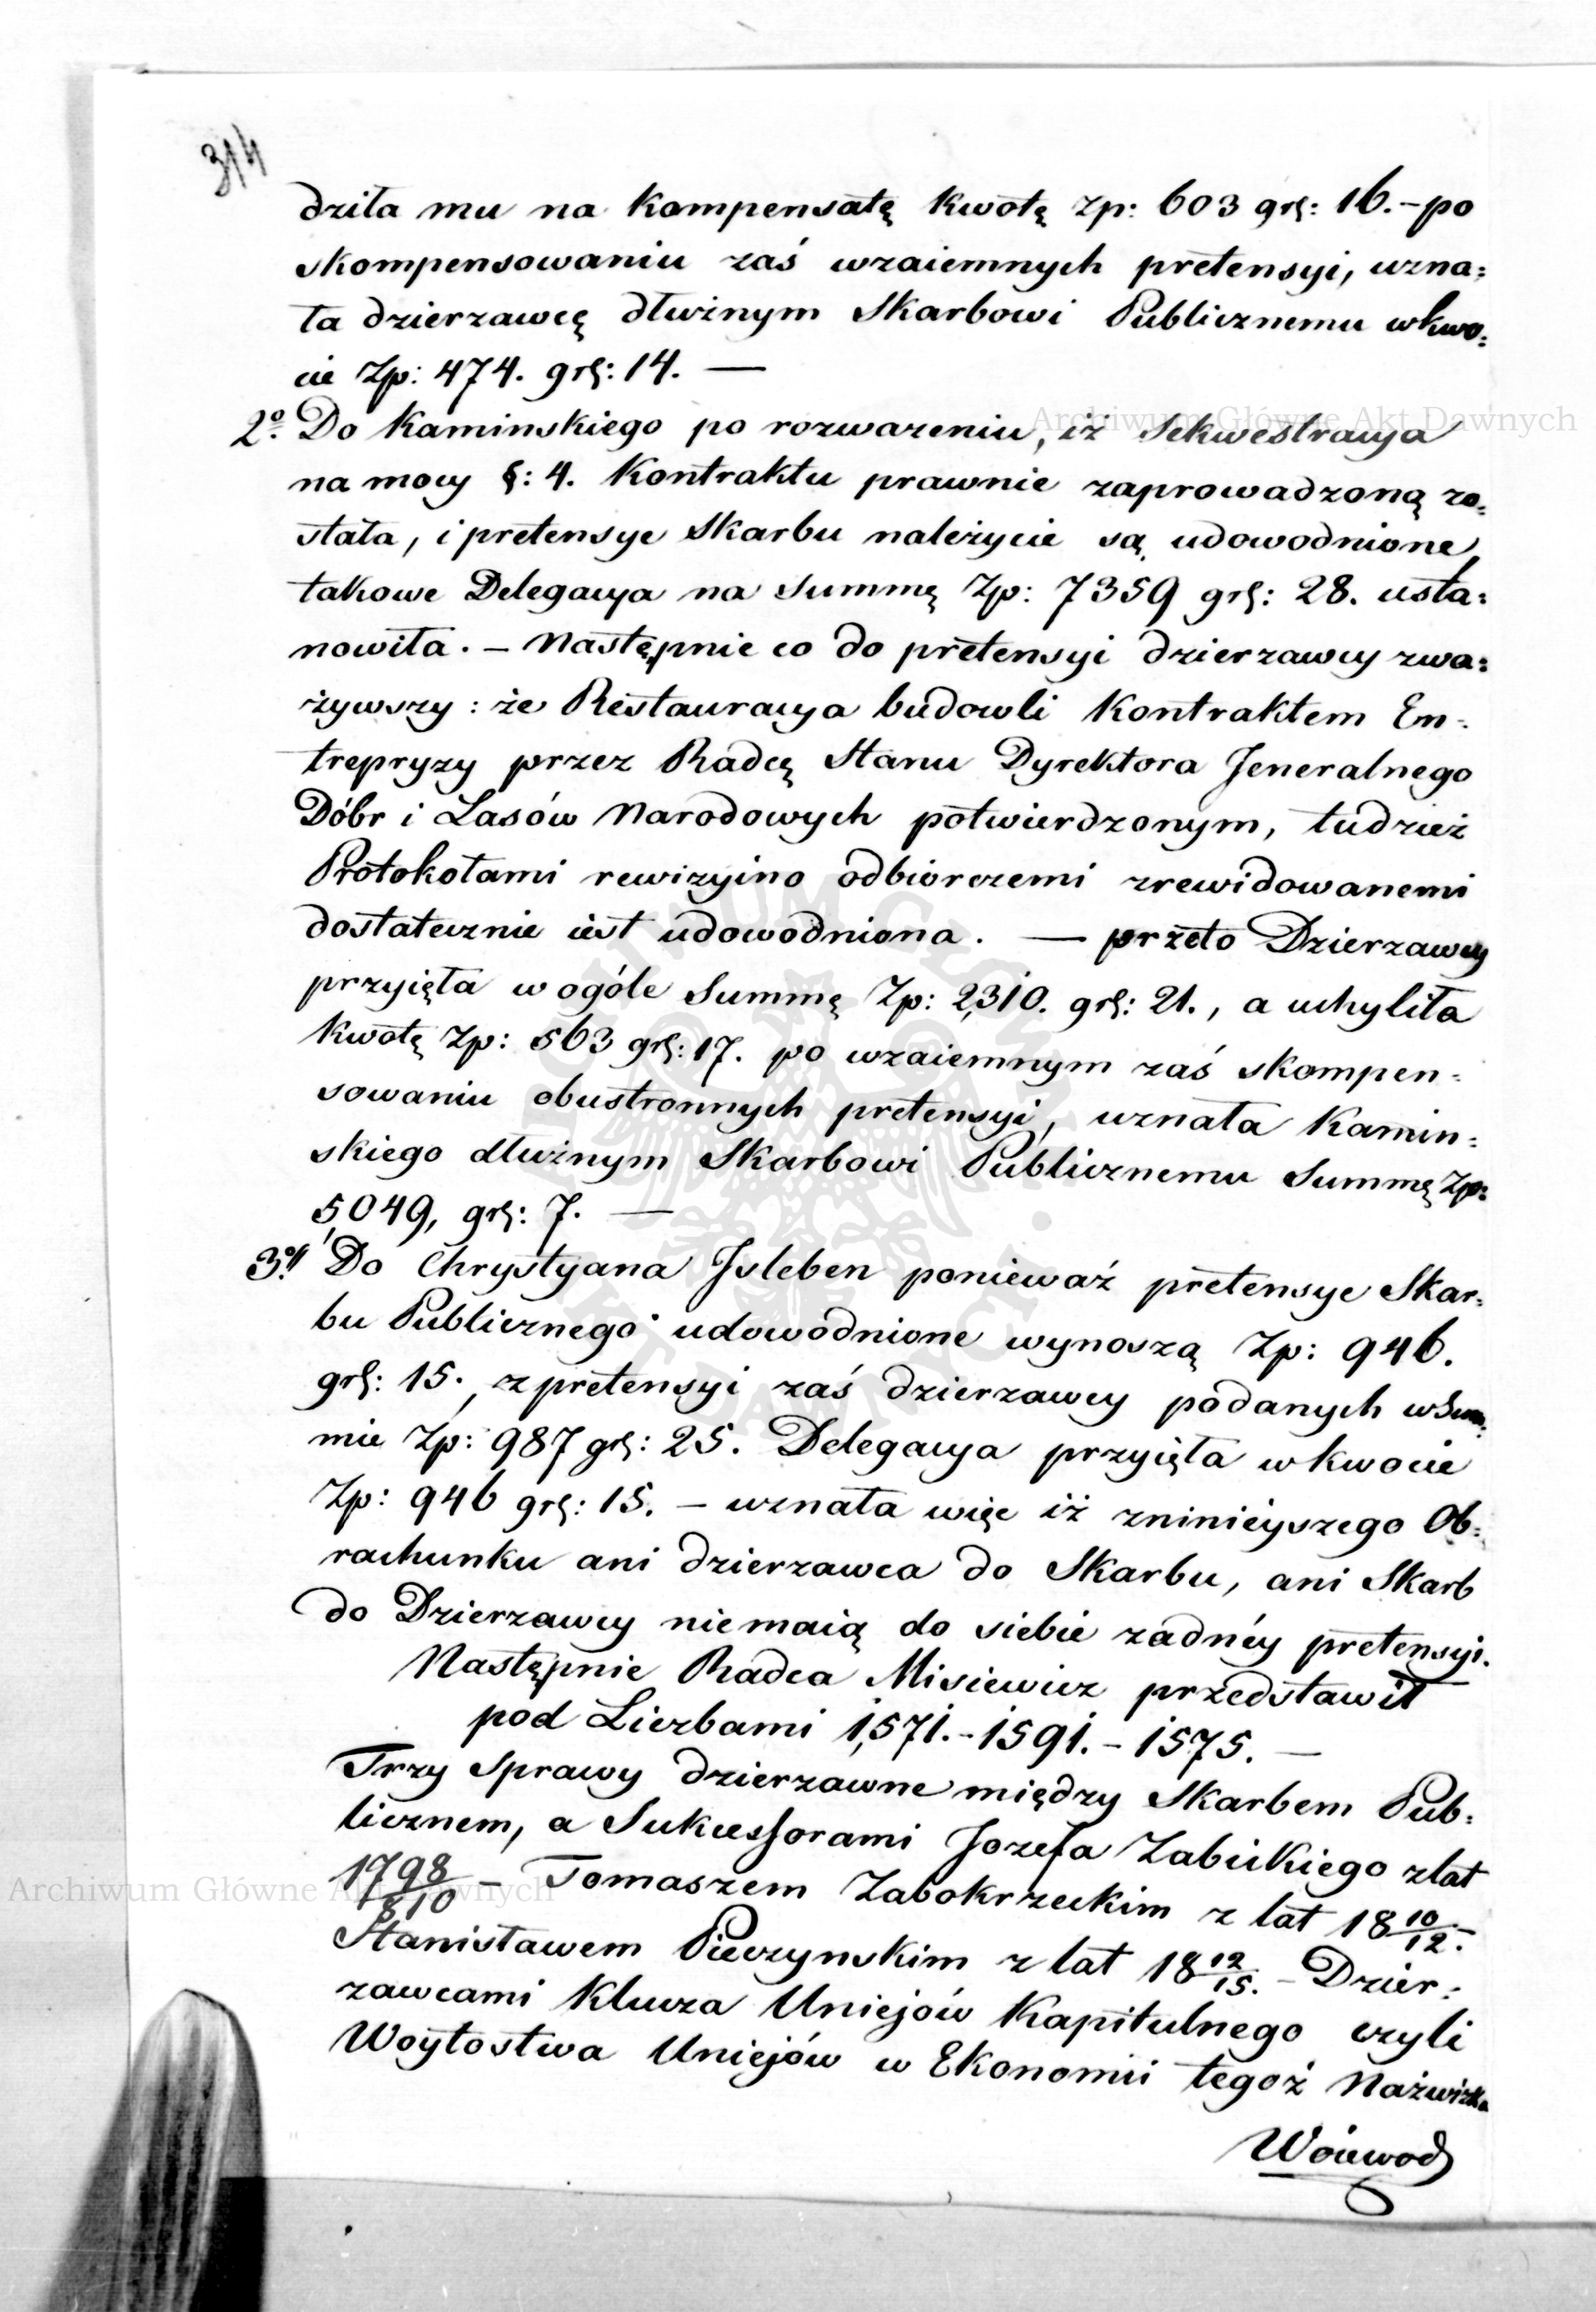 314
dziła mu na kompensatę kwotę Zp: 603 grs: 16. – po
skompensowaniu zaś wzaiemnych pretensyi, uzna=
ła dzierzawcę dłużnym Skarbowi Publicznemu wkwo=
cie Zp: 474. grs: 14. —
2º. Do Kaminskiego po rozwazeniu, iż Sekwestracya
na mocy §: 4. Kontraktu prawnie zaprowadzoną zo=
stała, i pretensye Skarbu należycie są udowodnione,
takowe Delegacya na Summę Zp: 7359 grs: 28. usta=
nowiła. – Następnie co do pretensyi dzierzawcy zwa=
żywszy: że Restauracya budowli Kontraktem En=
trepryzy przez Radcę Stanu Dyrektora Jeneralnego
Dóbr i Lasów Narodowych potwierdzonym, tudzież
Protokołami rewizyino odbiorczemi zrewidowanemi
dostatecznie iest udowodniona. — przeto Dzierzawcy
przyięła w ogóle Summę Zp: 2,310. grs: 21., a uchyliła
kwotę Zp: 563 grs: 17. po wzaiemnym zaś skompen=
sowaniu obustronnych pretensyi, uznała Kamin=
skiego dłużnym Skarbowi Publicznemu Summę Zp:
5,049, grs: 7. —
3º. Do Chrystyana Jsleben ponieważ pretensye Skar=
bu Publicznego udowodnione wynoszą Zp: 946.
grs: 15., z pretensyi zaś dzierzawcy podanych wSum=
mie Zp: 987 grs: 25. Delegacya przyięła w kwocie
Zp: 946 grs: 15. – uznała więc iż zninieyszego Ob=
rachunku ani dzierzawca do Skarbu, ani Skarb
do Dzierzawcy niemaią do siebie zadnéy pretensyi.
Następnie Radca Misiewicz przedstawił
pod Liczbami 1,571. – 1591. – 1575. —
Trzy Sprawy dzierzawne między Skarbem Pub=
licznem, a Sukcessorami Jozefa Zabickiego z lat
1798/810 – Tomaszem Zabokrzeckim z lat 18 10/12. –
Stanisławem Pieczynskim z lat 18 12/15. – Dzier=
zawcami Klucza Uniejów Kapitulnego czyli
Woytostwa Uniejów w Ekonomii tegoż Nazwiska
Woiewod
Archiwum Główne Akt Dawnych
Archiwum Główne Akt Dawnych
ARCHIWUM GŁÓWNE AKT DAWNYCH